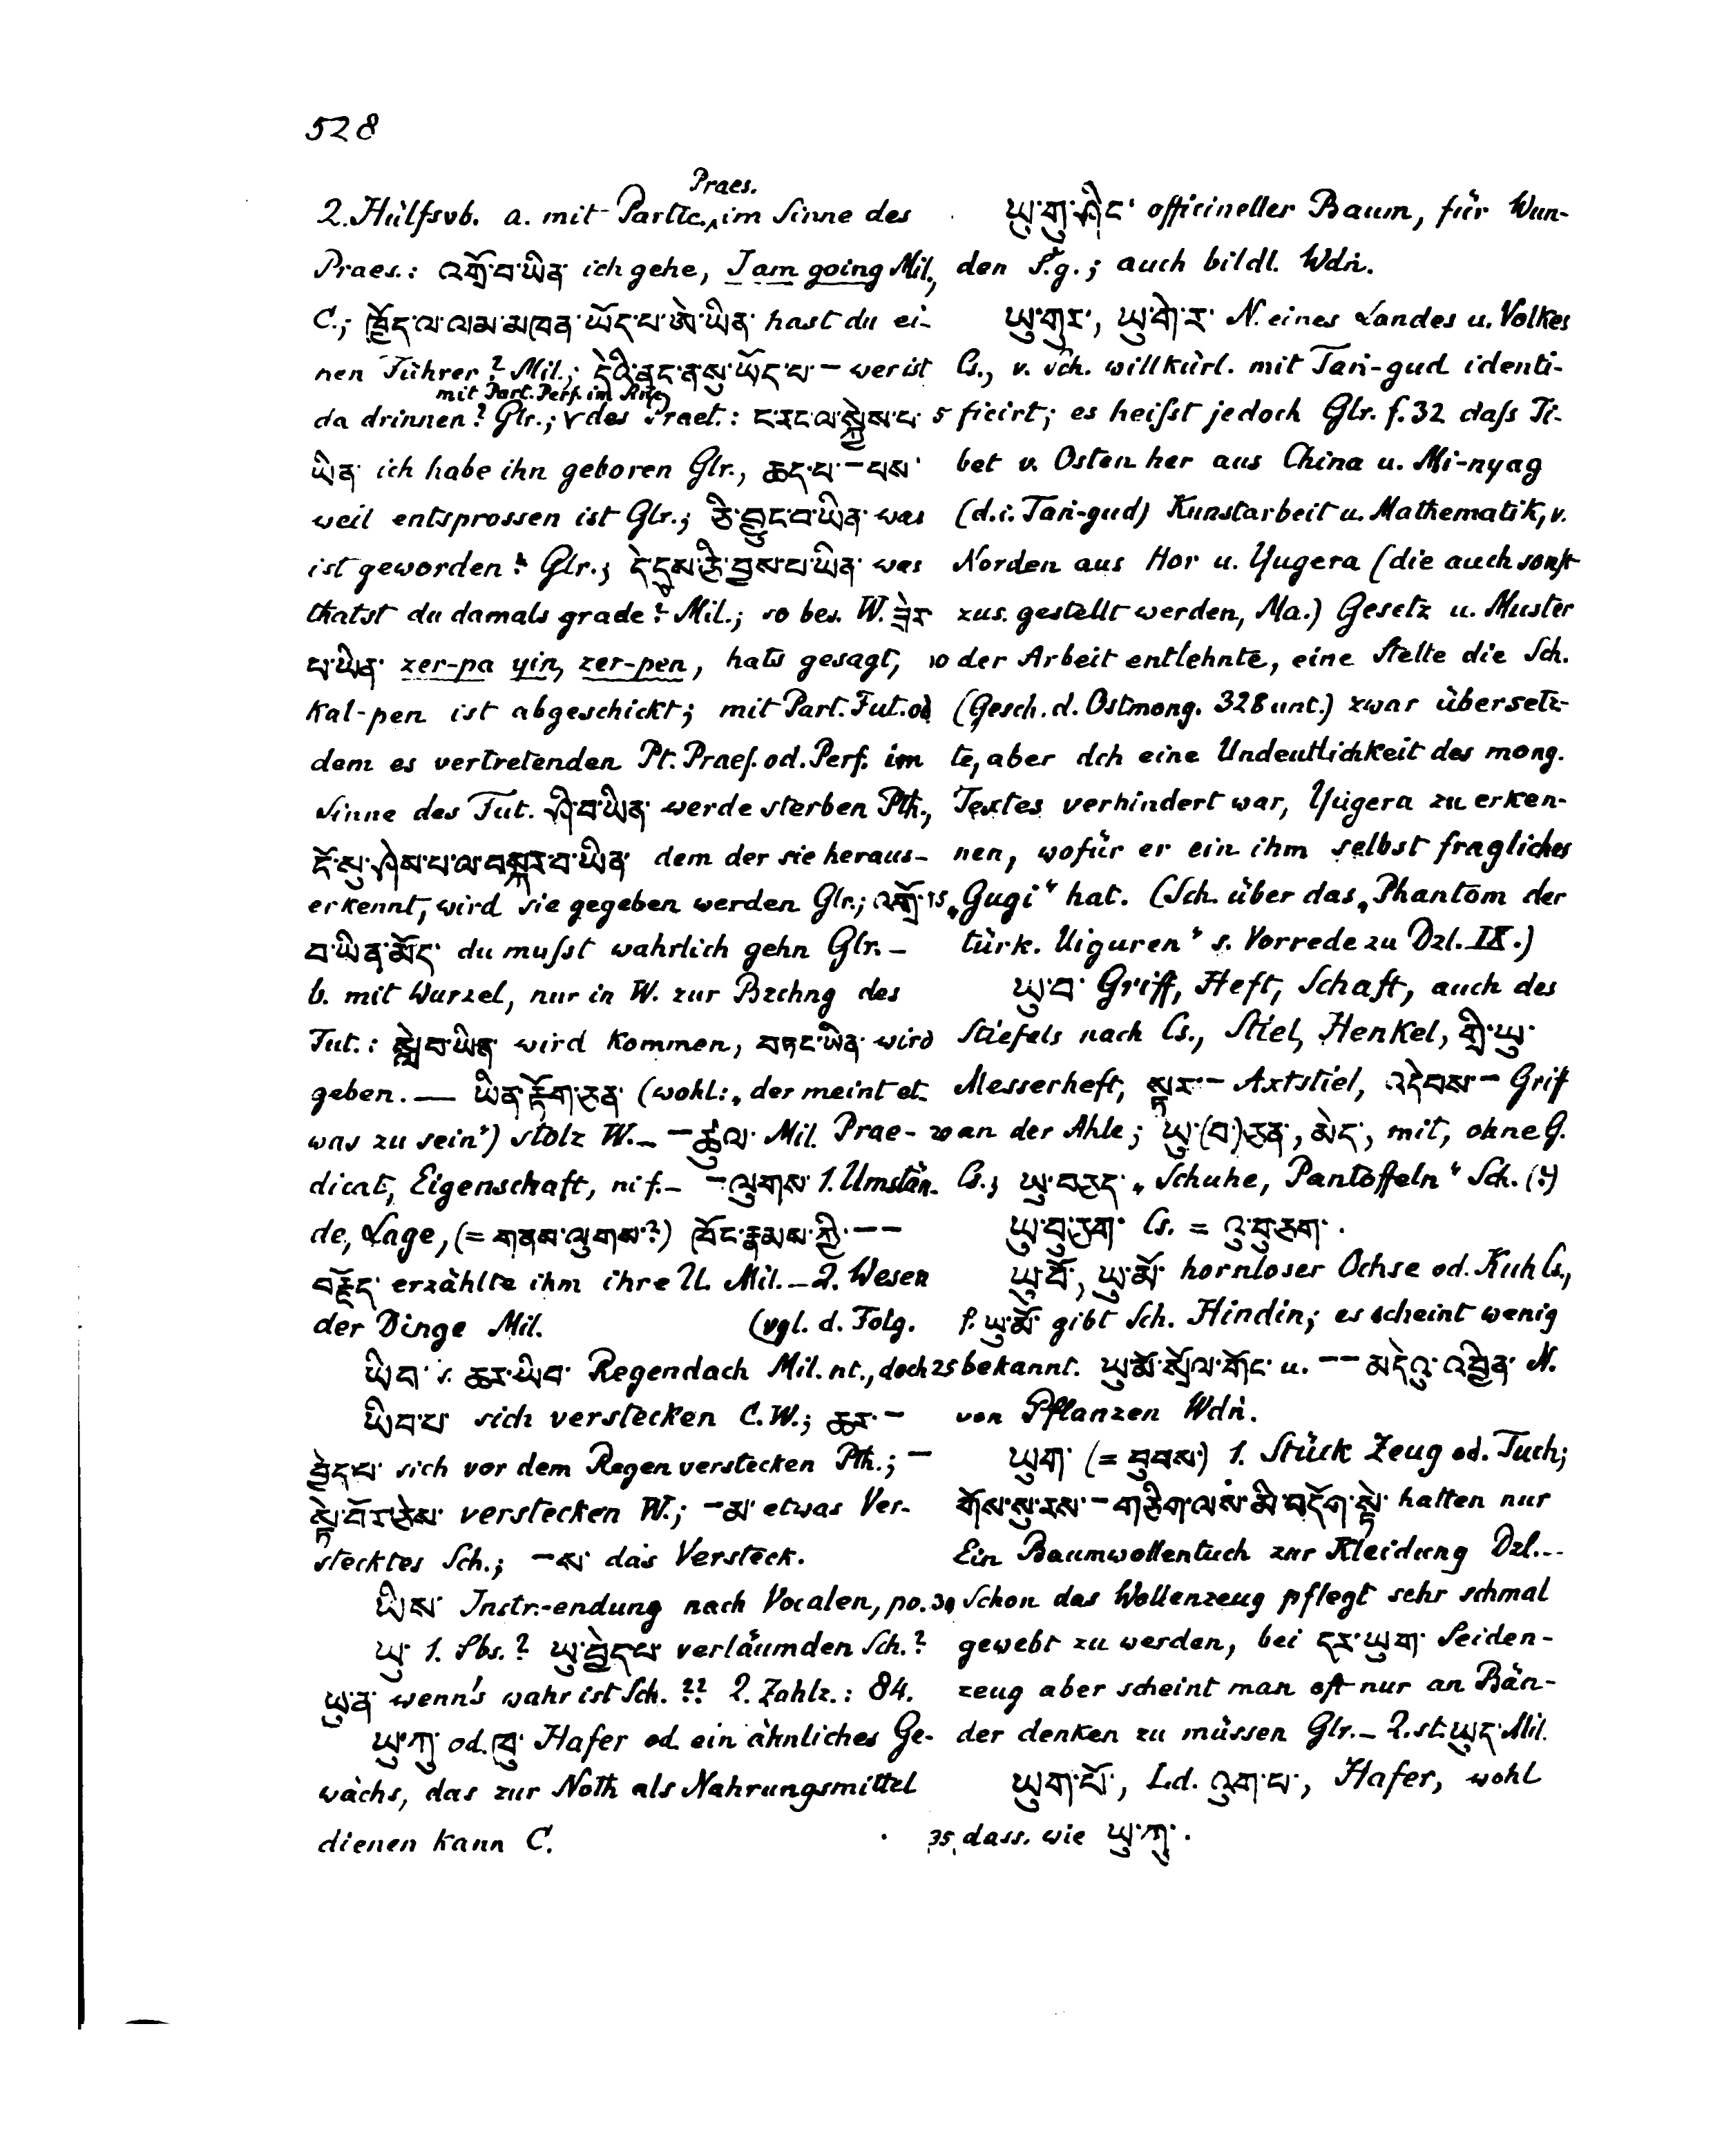 528
Praes.
2. Hülfsvb. a. mit Partic. im Sinne des
Praes.: འགྲོ་བ་ཡིན་ ich gehe, I am going Mil.,
C.; ཁྱོད་ལ་ལམ་མཁན་ཡོད་པ་ཨེ་ཡིན་ hast du ei-
nen Führer? Mil.; དེའི་ནང་ན་སུ་ཡོད་པ་ – wer ist
mit Part. Perf. im Sinne
da drinnen? Glr.; des Praet.: ང་རང་ལ་སྐྱེས་པ་
ཡིན་ ich habe ihn geboren Glr., ཆད་པ་–པས་
weil entsprossen ist Glr.; ཅི་བྱུང་བ་ཡིན་ was
ist geworden? Glr.; དེ་དུས་ཅི་བྱས་པ་ཡིན་ was
thatst du damals grade? Mil.; so bes. W. ཟེར་
པ་ཡིན་ zer-pa yin, zer-pen, hats gesagt,
kal-pen ist abgeschickt; mit Part. Fut. od
dem es vertretenden Pt. Praes. od. Perf. im
Sinne des Fut. ཤི་བ་ཡིན་ werde sterben Pth.,
ངོ་སུ་ཤེས་པ་ལ་བསྐུར་བ་ཡིན་ dem der sie heraus-
erkennt, wird sie gegeben werden Glr.; འགྲོ་
བ་ཡིན་མོད་ du musst wahrlich gehn Glr. –
b. mit Wurzel, nur in W. zur Bzchng des
Fut.: སླེབ་ཡིན་ wird kommen, བཏང་ཡིན་ wird
geben. — ཡིན་རྟོག་ཅན་ (wohl: „der meint et-
was zu sein") stolz W. – –ཚུལ་ Mil. Prae-
dicat, Eigenschaft, nif. – –ལུགས་ 1. Umstän-
de, Lage, (= གནས་ལུགས་?) ཁོང་རྣམས་ཀྱི་ – –
བརྗོད་ erzählte ihm ihre U. Mil. – 2. Wesen
der Dinge Mil. (vgl. d. Folg.
ཡིབ་ s. ཆར་ཡིབ་ Regendach Mil. nt., doch
ཡིབ་པ་ sich verstecken C. W.; ཆར་ –
བྱེད་པ་ sich vor dem Regen verstecken Pth.; –
སྟེ་བོར་ཅེས་ verstecken W.; –མ་ etwas Ver-
stecktes Sch.; –ས་ das Versteck.
ཡིས་ Instr.-endung nach Vocalen, po.
ཡུ་ 1. Sbs.? ཡུ་བྱེད་པ་ verläumden Sch.?
ཡུན་ wenn's wahr ist Sch. ?? 2. Zahlz.: 84.
ཡུ་ཀུ་ od. ཁུ་ Hafer od. ein ähnliches Ge-
wächs, das zur Noth als Nahrungsmittel
dienen kann C.
ཡུ་གུ་ཤིང་ officineller Baum, für Wun-
den S.g.; auch bildl. Wdṅ.
ཡུ་གུར་, ཡུ་གེ་ར་ N. eines Landes u. Volkes
Cs., v. Sch. willkürl. mit Taṅ-gud identi-
5 ficirt; es heißt jedoch Glr. f. 32 daß Ti-
bet v. Osten her aus China u. Mi-nyag
(d. i. Taṅ-gud) Kunstarbeit u. Mathematik, v.
Norden aus Hor u. Yugera (die auch sonst
zus. gestellt werden, Ma.) Gesetz u. Muster
10 der Arbeit entlehnte, eine Stelle die Sch.
(Gesch. d. Ostmong. 328 unt.) zwar übersetz-
te, aber dch eine Undeutlichkeit des mong.
Textes verhindert war, Yügera zu erken-
nen, wofür er ein ihm selbst fragliches
15 „Gugi" hat. (Sch. über das „Phantom der
türk. Uiguren" s. Vorrede zu Dzl. IX.)
ཡུ་བ་ Griff, Heft, Schaft, auch des
Stiefels nach Cs., Stiel, Henkel, གྲི་ཡུ་
Messerheft, སྟར་ – Axtstiel, འདེབས་ – Grif
20 an der Ahle; ཡུ་(བ་)ཅན་, མེད་, mit, ohne G.
Cs.; ཡུ་བཅད་ „Schuhe, Pantoffeln" Sch. (?)
ཡུ་བུ་ཅག་ Cs. = འུ་བུ་ཅག་.
ཡུ་བོ་, ཡུ་མོ་ hornloser Ochse od. Kuh Cs.,
f. ཡུ་མོ་ gibt Sch. Hindin; es scheint wenig
25 bekannt. ཡུ་མོ་མྱོལ་གོང་ u. – – མདེའུ་འབྱིན་ N.
von Pflanzen Wdṅ.
ཡུག་ (= བུབས་) 1. Stück Zeug od. Tuch;
གོས་སུ་རས་ – གཅིག་ལས་མི་བདོག་སྟེ་ hatten nur
Ein Baumwollentuch zur Kleidung Dzl. --
30 Schon das Wollenzeug pflegt sehr schmal
gewebt zu werden, bei དར་ཡུག་ Seiden-
zeug aber scheint man oft nur an Bän-
der denken zu müssen Glr. – 2. st. ཡུད་ Mil.
ཡུག་པོ་, Ld. འུག་པ་, Hafer, wohl
35 dass. wie ཡུ་ཀུ་.